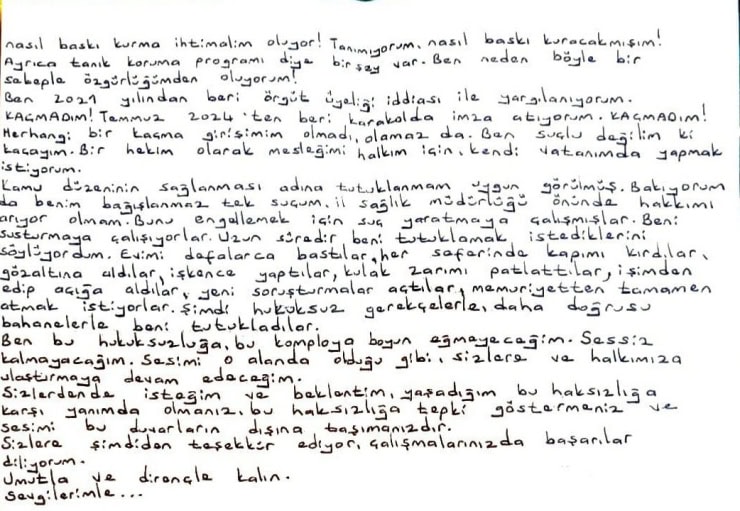 nasıl baskı kurma ihtimalim oluyor! Tanımıyorum, nasıl baskı kuracakmışım!
Ayrıca tanık koruma programı diye bir şey var. Ben neden böyle bir
sebeple özgürlüğümden oluyorum!
Ben 2021 yılından beri örgüt üyeliği iddiası ile yargılanıyorum.
KAÇMADIM! Temmuz 2024'ten beri karakolda imza atıyorum. KAÇMADIM!
Herhangi bir kaçma girişimim olmadı, olamaz da. Ben suçlu değilim ki
kaçayım. Bir hekim olarak mesleğimi halkım için, kendi vatanımda yapmak
istiyorum.
Kamu düzeninin sağlanması adına tutuklanmam uygun görülmüş. Bakıyorum
da benim bağışlanmaz tek suçum, il sağlık müdürlüğü önünde hakkımı
arıyor olmam. Bunu engellemek için suç yaratmaya çalışmışlar. Beni
susturmaya çalışıyorlar. Uzun süredir beni tutuklamak istediklerini
söylüyordum. Evimi defalarca bastılar, her seferinde kapımı kırdılar,
gözaltına aldılar, işkence yaptılar, kulak zarımı patlattılar, işimden
edip açığa aldılar, yeni soruşturmalar açtılar, memuriyetten tamamen
atmak istiyorlar. Şimdi hukuksuz gerekçelerle, daha doğrusu
bahanelerle beni tutukladılar.
Ben bu hukuksuzluğa, bu komploya boyun eğmeyeceğim. Sessiz
kalmayacağım. Sesimi o alanda olduğu gibi, sizlere ve halkımıza
ulaştırmaya devam edeceğim.
Sizlerdende isteğim ve beklentim, yaşadığım bu haksızlığa
karşı yanımda olmanız, bu haksızlığa tepki göstermeniz ve
sesimi bu duvarların dışına taşımanızdır.
Sizlere şimdiden teşekkür ediyor, çalışmalarınızda başarılar
diliyorum.
Umutla ve dirençle kalın.
Sevgilerimle...